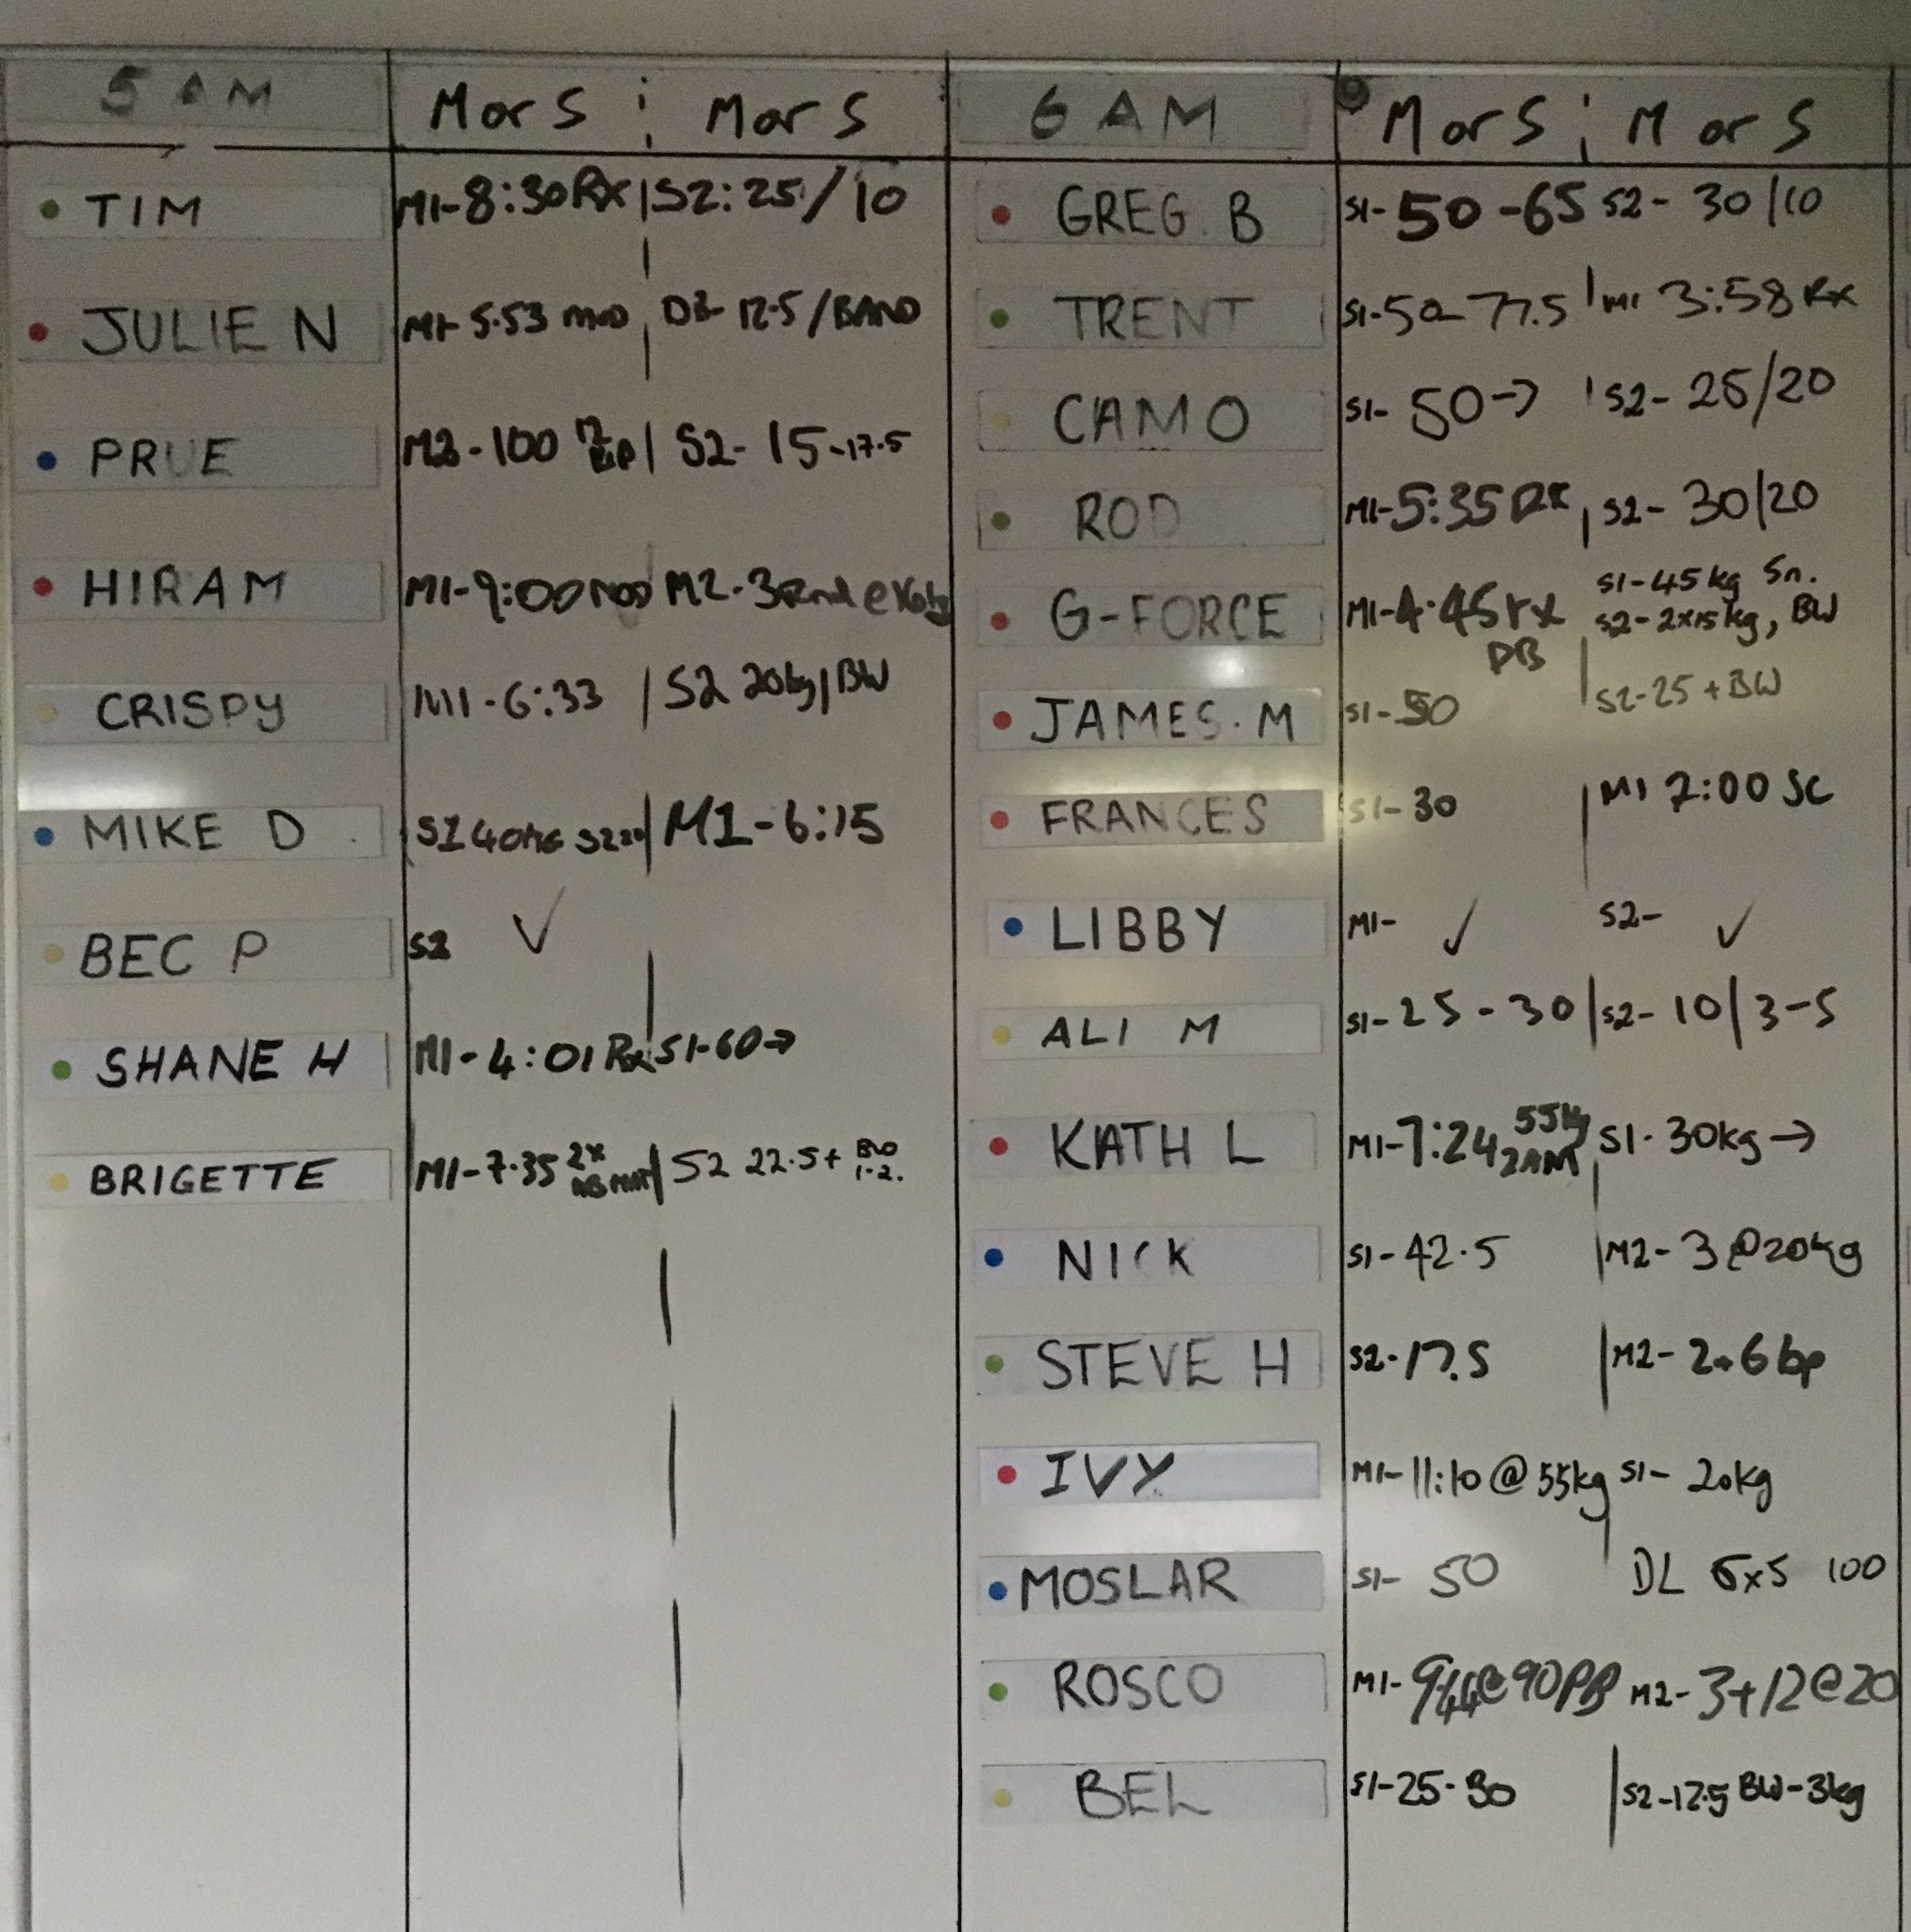 5 AM MorS ; MorS
TIM M1-8:30 Rx | S2: 25/10
JULIE N M1- 5.53 mod DB- 12.5/BAND
PRUE 100 | S2- 15-17.5
HIRAM M1-9:00 M2-3
CRISPY M1-6:33 | S2 20kg/BW
MIKE D S1 40KG S2 20 | M1-6:15
BEC P S2 ✓
SHANE H M1-4:01 Rx S1-60→
BRIGETTE M1-7.35 2x | S2 22.5+ BW
1-2.
6 AM MorS ; MorS
GREG. B S1-50-65 S2- 30/10
TRENT S1-50-77.5 | M1 3:58 Rx
CAMO S1- 50→ | S2- 25/20
ROD M1-5:35 RX | S2- 30/20
G-FORCE M1-4.45 rx S1-45kg Sn.
PB S2-2x15kg, BW
JAMES. M S1-50 | S2-25+BW
FRANCES S1-30 | M1 7:00 SC
LIBBY M1- ✓ S2- ✓
ALI M S1-25-30 | S2-10 | 3-5
KATH L M1-7:24 55kg S1-30kg→
NICK S1-42.5 | M2-3 @20kg
STEVE H S2-17.5 | M2- 2+6 bp
IVY M1-11:10 @ 55kg S1- 20kg
MOSLAR S1- 50 DL 5x5 100
ROSCO M1- 9:44@90 PB M2-3+12@20
BEL S1-25-30 | S2-17.5 BW-3kg